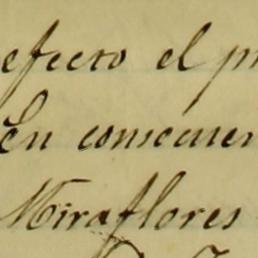 efecto el pr
En consecuen
Miraflores